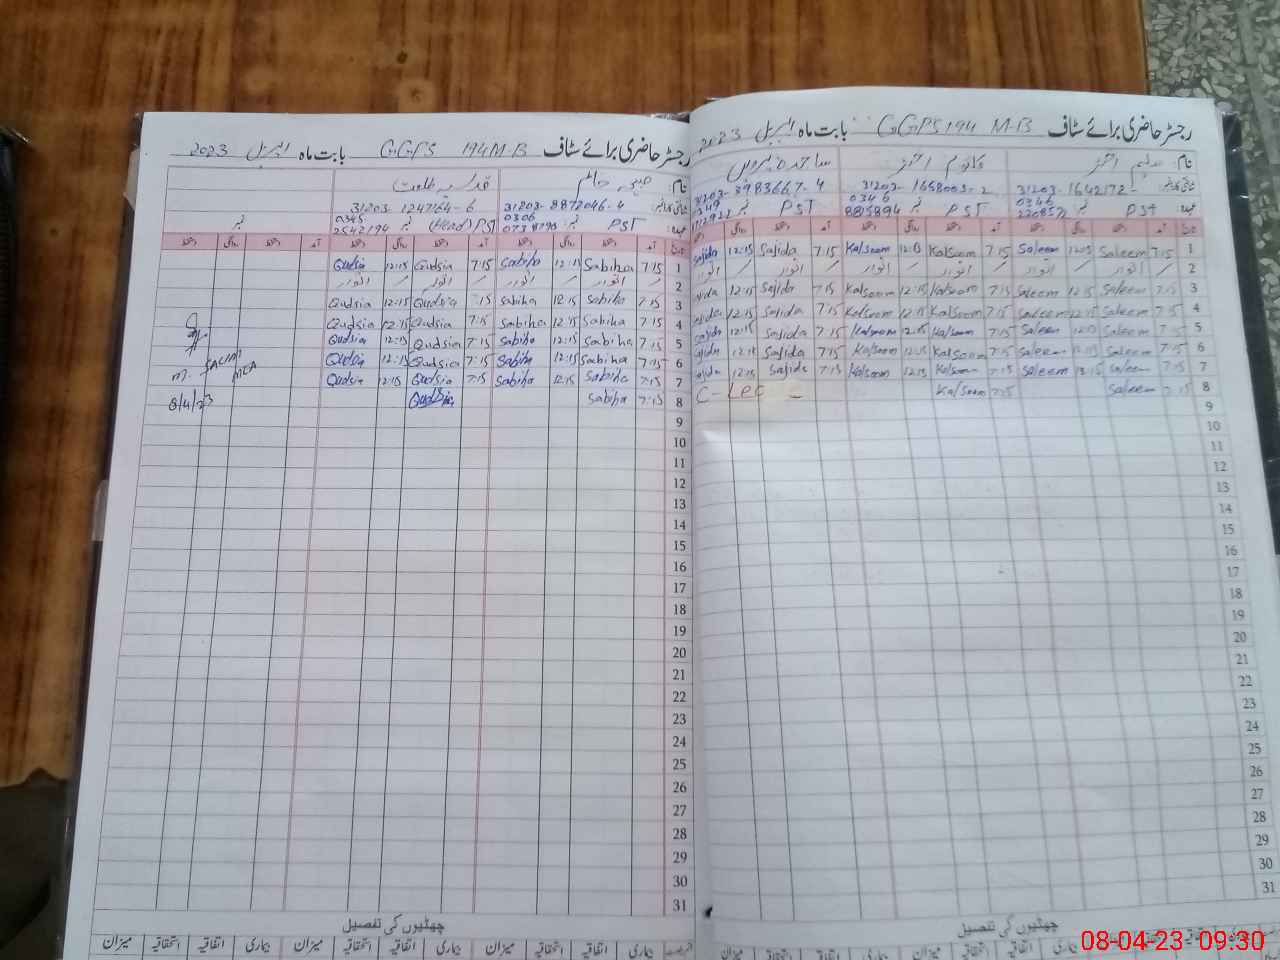 رجسٹر حاضری برائے سٹاف GGPS 194 M-B بابت ماہ اپریل 2023
نام:
PST PST PST
تاریخ آمد دستخط روانگی دستخط آمد دستخط روانگی دستخط آمد دستخط روانگی دستخط
1 7:15 Saleem 12:15 Saleem 7:15 Kalsoom 12:15 Kalsoom 7:15 Sajida 12:15 Sajida
2 / اتوار / اتوار / اتوار / اتوار / اتوار / اتوار
3 7:15 Saleem 12:15 Saleem 7:15 Kalsoom 12:15 Kalsoom 7:15 Sajida 12:15 Sajida
4 7:15 Saleem 12:15 Saleem 7:15 Kalsoom 12:15 Kalsoom 7:15 Sajida 12:15 Sajida
5 7:15 Saleem 12:15 Saleem 7:15 Kalsoom 12:15 Kalsoom 7:15 Sajida 12:15 Sajida
6 7:15 Saleem 12:15 Saleem 7:15 Kalsoom 12:15 Kalsoom 7:15 Sajida 12:15 Sajida
7 7:15 Saleem Saleem 7:15 Kalsoom 12:15 Kalsoom 7:15 Sajida 12:15 Sajida
8 7:15 Saleem 7:15 Kalsoom C-Lec
9
10
11
12
13
14
15
16
17
18
19
20
21
22
23
24
25
26
27
28
29
30
31
چھٹیوں کی تفصیل
رجسٹر حاضری برائے سٹاف GGPS 194 M-B بابت ماہ اپریل 2023
نام:
31203-8872046-4 31203-1247164-6
PST نمبر 0306 (Head) PST نمبر 0345 2542194 نمبر
تاریخ آمد دستخط روانگی دستخط آمد دستخط روانگی دستخط آمد دستخط روانگی دستخط
1 7:15 Sabiha 12:15 Sabiha 7:15 Qudsia 12:15 Qudsia
2 / اتوار / اتوار / اتوار / اتوار
3 7:15 Sabiha 12:15 Sabiha :15 Qudsia 12:15 Qudsia
4 7:15 Sabiha 12:15 Sabiha 7:15 Qudsia 12:15 Qudsia
5 7:15 Sabiha 12:15 Sabiha 7:15 Qudsia 12:15 Qudsia
6 7:15 Sabiha 12:15 Sabiha 7:15 Qudsia 12:15 Qudsia
7 7:15 Sabiha 12:15 Sabiha 7:15 Qudsia 12:15 Qudsia
8 7:15 Sabiha Qudsia
MEA
8/4/23
9
10
11
12
13
14
15
16
17
18
19
20
21
22
23
24
25
26
27
28
29
30
31
چھٹیوں کی تفصیل
بیماری اتفاقیہ استحقاقیہ میزان بیماری اتفاقیہ استحقاقیہ میزان بیماری اتفاقیہ استحقاقیہ میزان
08-04-23 09:30